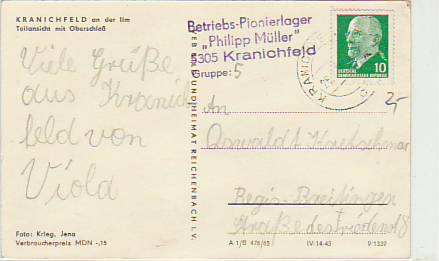 KRANICHFELD an der Ilm
Teilansicht mit Oberschloß
Viele Grüße
aus Kranich
feld von
Viola
Foto: Krieg, Jena
Verbraucherpreis MDN -,15
VEB BILD UND HEIMAT REICHENBACH I. V.
Betriebs-Pionierlager
„Philipp Müller"
5305 Kranichfeld
Gruppe: 5
KRANICHFELD
DEUTSCHE
DEMOKRATISCHE REPUBLIK
10
An
Oswaldt Kretschmar
Regis-Breitingen
Straße des Friedens 8
A 1/B 476/65 IV-14-43 9/1359